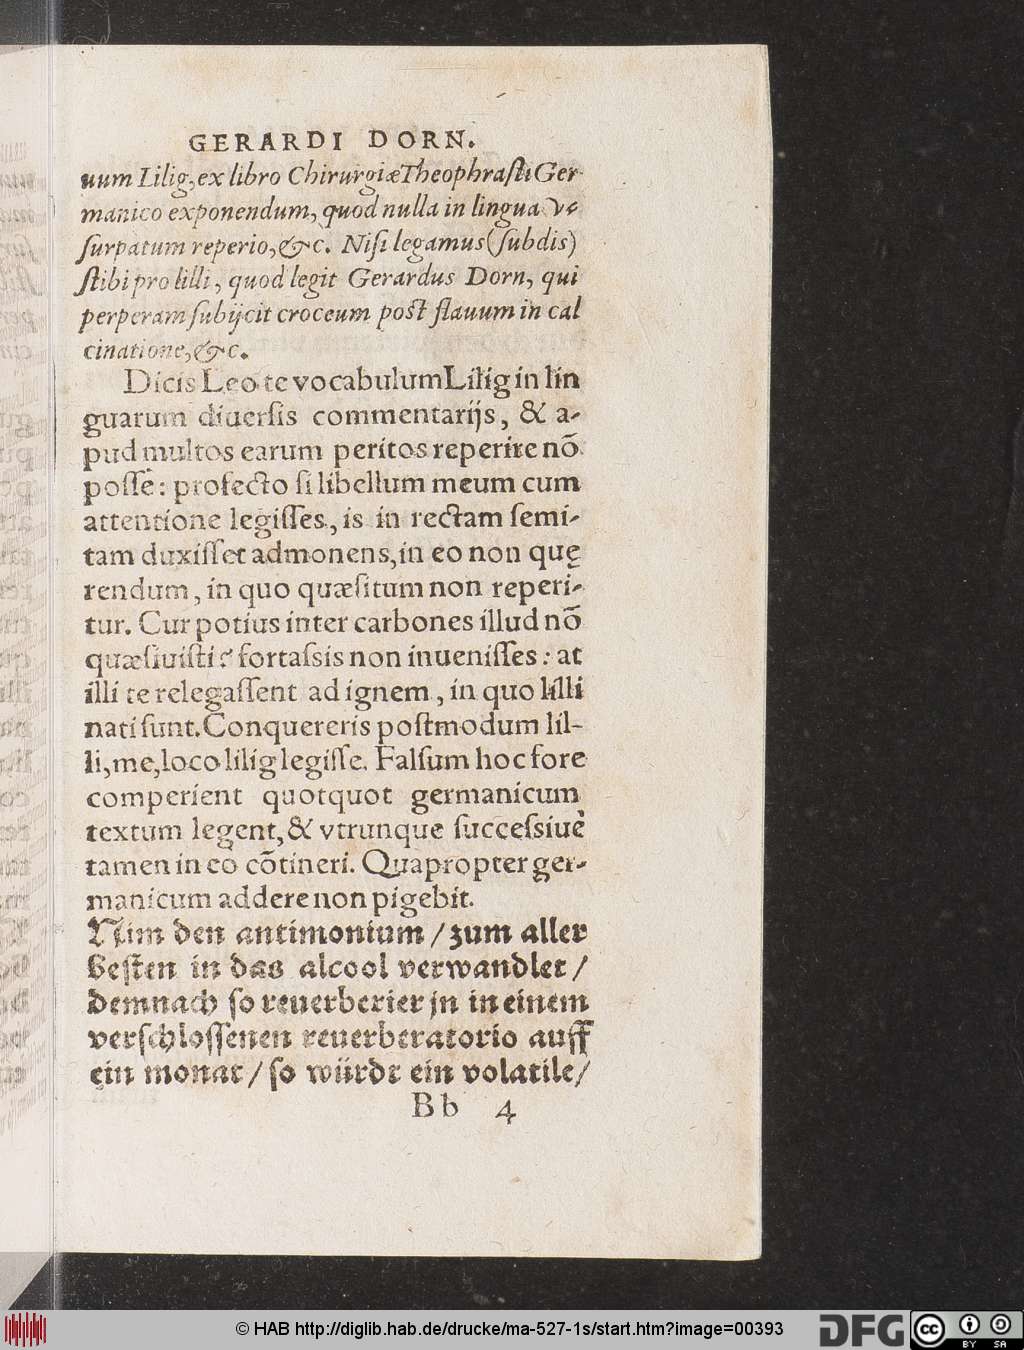 GERARDI DORN.
uum Lilig, ex libro Chirurgiæ Theophrasti Ger-
manico exponendum, quod nulla in lingua v-
surpatum reperio, &c. Nisi legamus (subdis)
stibi pro lilli, quod legit Gerardus Dorn, qui
perperam subijcit croceum post flauum in cal
cinatione, &c.
Dicis Leo te vocabulum Lilig in lin
guarum diuersis commentarijs, & a-
pud multos earum peritos reperire nõ
posse: profecto si libellum meum cum
attentione legisses, is in rectam semi-
tam duxisset admonens, in eo non quę
rendum, in quo quæsitum non reperi-
tur. Cur potius inter carbones illud nõ
quæsiuisti? fortassis non inuenisses: at
illi te relegassent ad ignem, in quo lilli
nati sunt. Conquereris postmodum lil-
li, me, loco lilig legisse. Falsum hoc fore
comperient quotquot germanicum
textum legent, & vtrunque successiuè
tamen in eo cõtineri. Quapropter ger-
manicum addere non pigebit.
Nim den antimonium / zum aller
besten in das alcool verwandlet /
demnach so reuerberier jn in einem
verschlossenen reuerberatorio auff
ein monat / so würdt ein volatile /
Bb 4
© HAB http://diglib.hab.de/drucke/ma-527-1s/start.htm?image=00393
DFG
cc BY SA